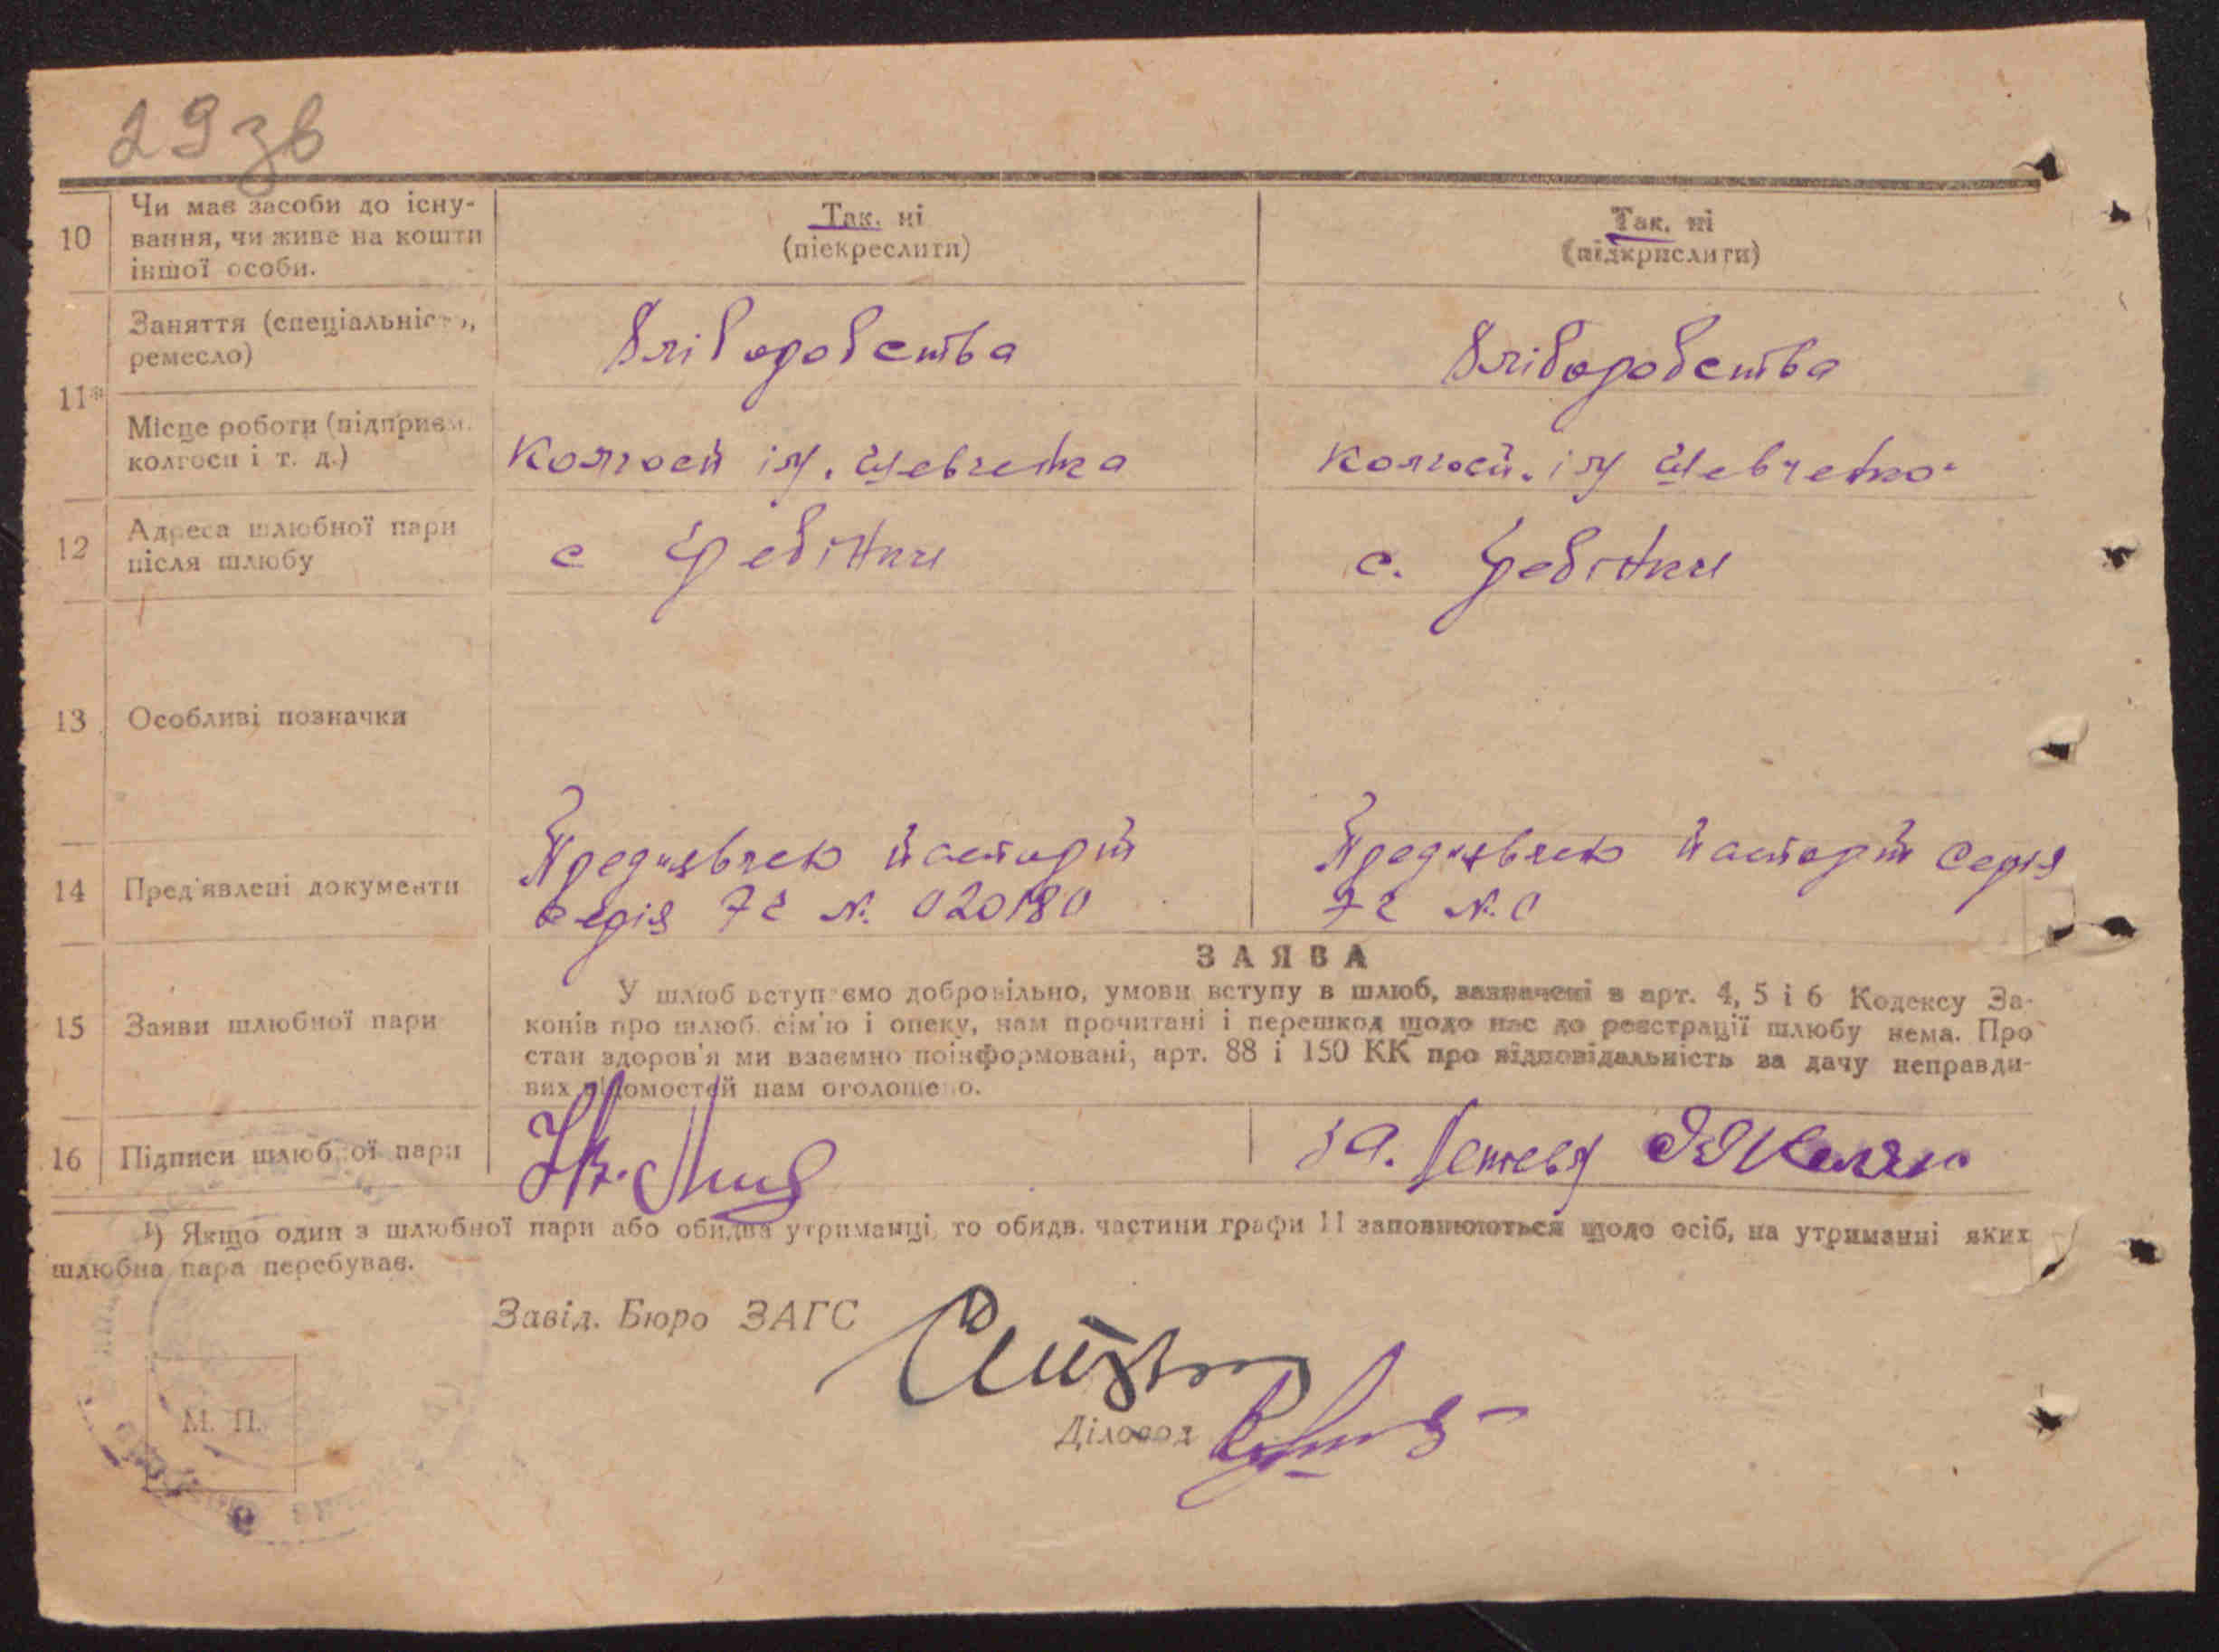 29 зв
10 Чи має засоби до існу-
вання, чи живе на кошти
іншої особи.
Так. ні
(піекреслити)
Так. ні
(підкрислити)
11* Заняття (спеціальність,
ремесло)
Хліборобства
Хліборобства
Місце роботи (підприєм.
колгосп і т. д.)
Колгосп ім. Шевченка
Колгосп. ім Шевченко
12 Адреса шлюбної пари
після шлюбу
с Гребінки
с. Гребінки
13 Особливі позначки
14 Пред'явлені документи
Предиявлено паспорт
серія 72 №. 020180
Предиявлено паспорт серія
72 №. 0
ЗАЯВА
15 Заяви шлюбної пари
У шлюб вступаємо добровільно, умови вступу в шлюб, зазначені в арт. 4, 5 і 6 Кодексу За-
конів про шлюб. сім'ю і опеку, нам прочитані і перешкод щодо нас до реєстрації шлюбу нема. Про
стан здоров'я ми взаємно поінформовані, арт. 88 і 150 КК про відповідальність за дачу неправди-
вих відомостей нам оголошено.
16 Підписи шлюбної пари
за.
¹) Якщо один з шлюбної пари або обидва утриманці, то обидв. частини графи 11 заповнюються щодо осіб, на утриманні яких
шлюбна пара перебуває.
Завід. Бюро ЗАГС
Діловод
М. П.